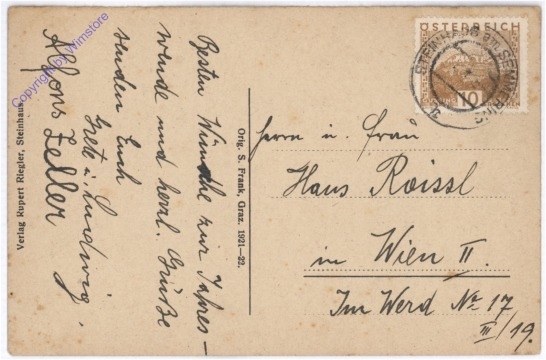 Besten Wünsche zur Jahres-
wende und herzl. Grüße
senden Euch
Grete u. Ludwig.
Alfons Zeller
Verlag Rupert Riegler, Steinhaus
Orig. S. Frank, Graz. 1921—22.
ÖSTERREICH
10
STEINHAUS AM SEMMERING
Herrn u. Frau
Hans Roissl
in Wien II.
Im Werd No 17
III/19.
Copyright by Wimstore